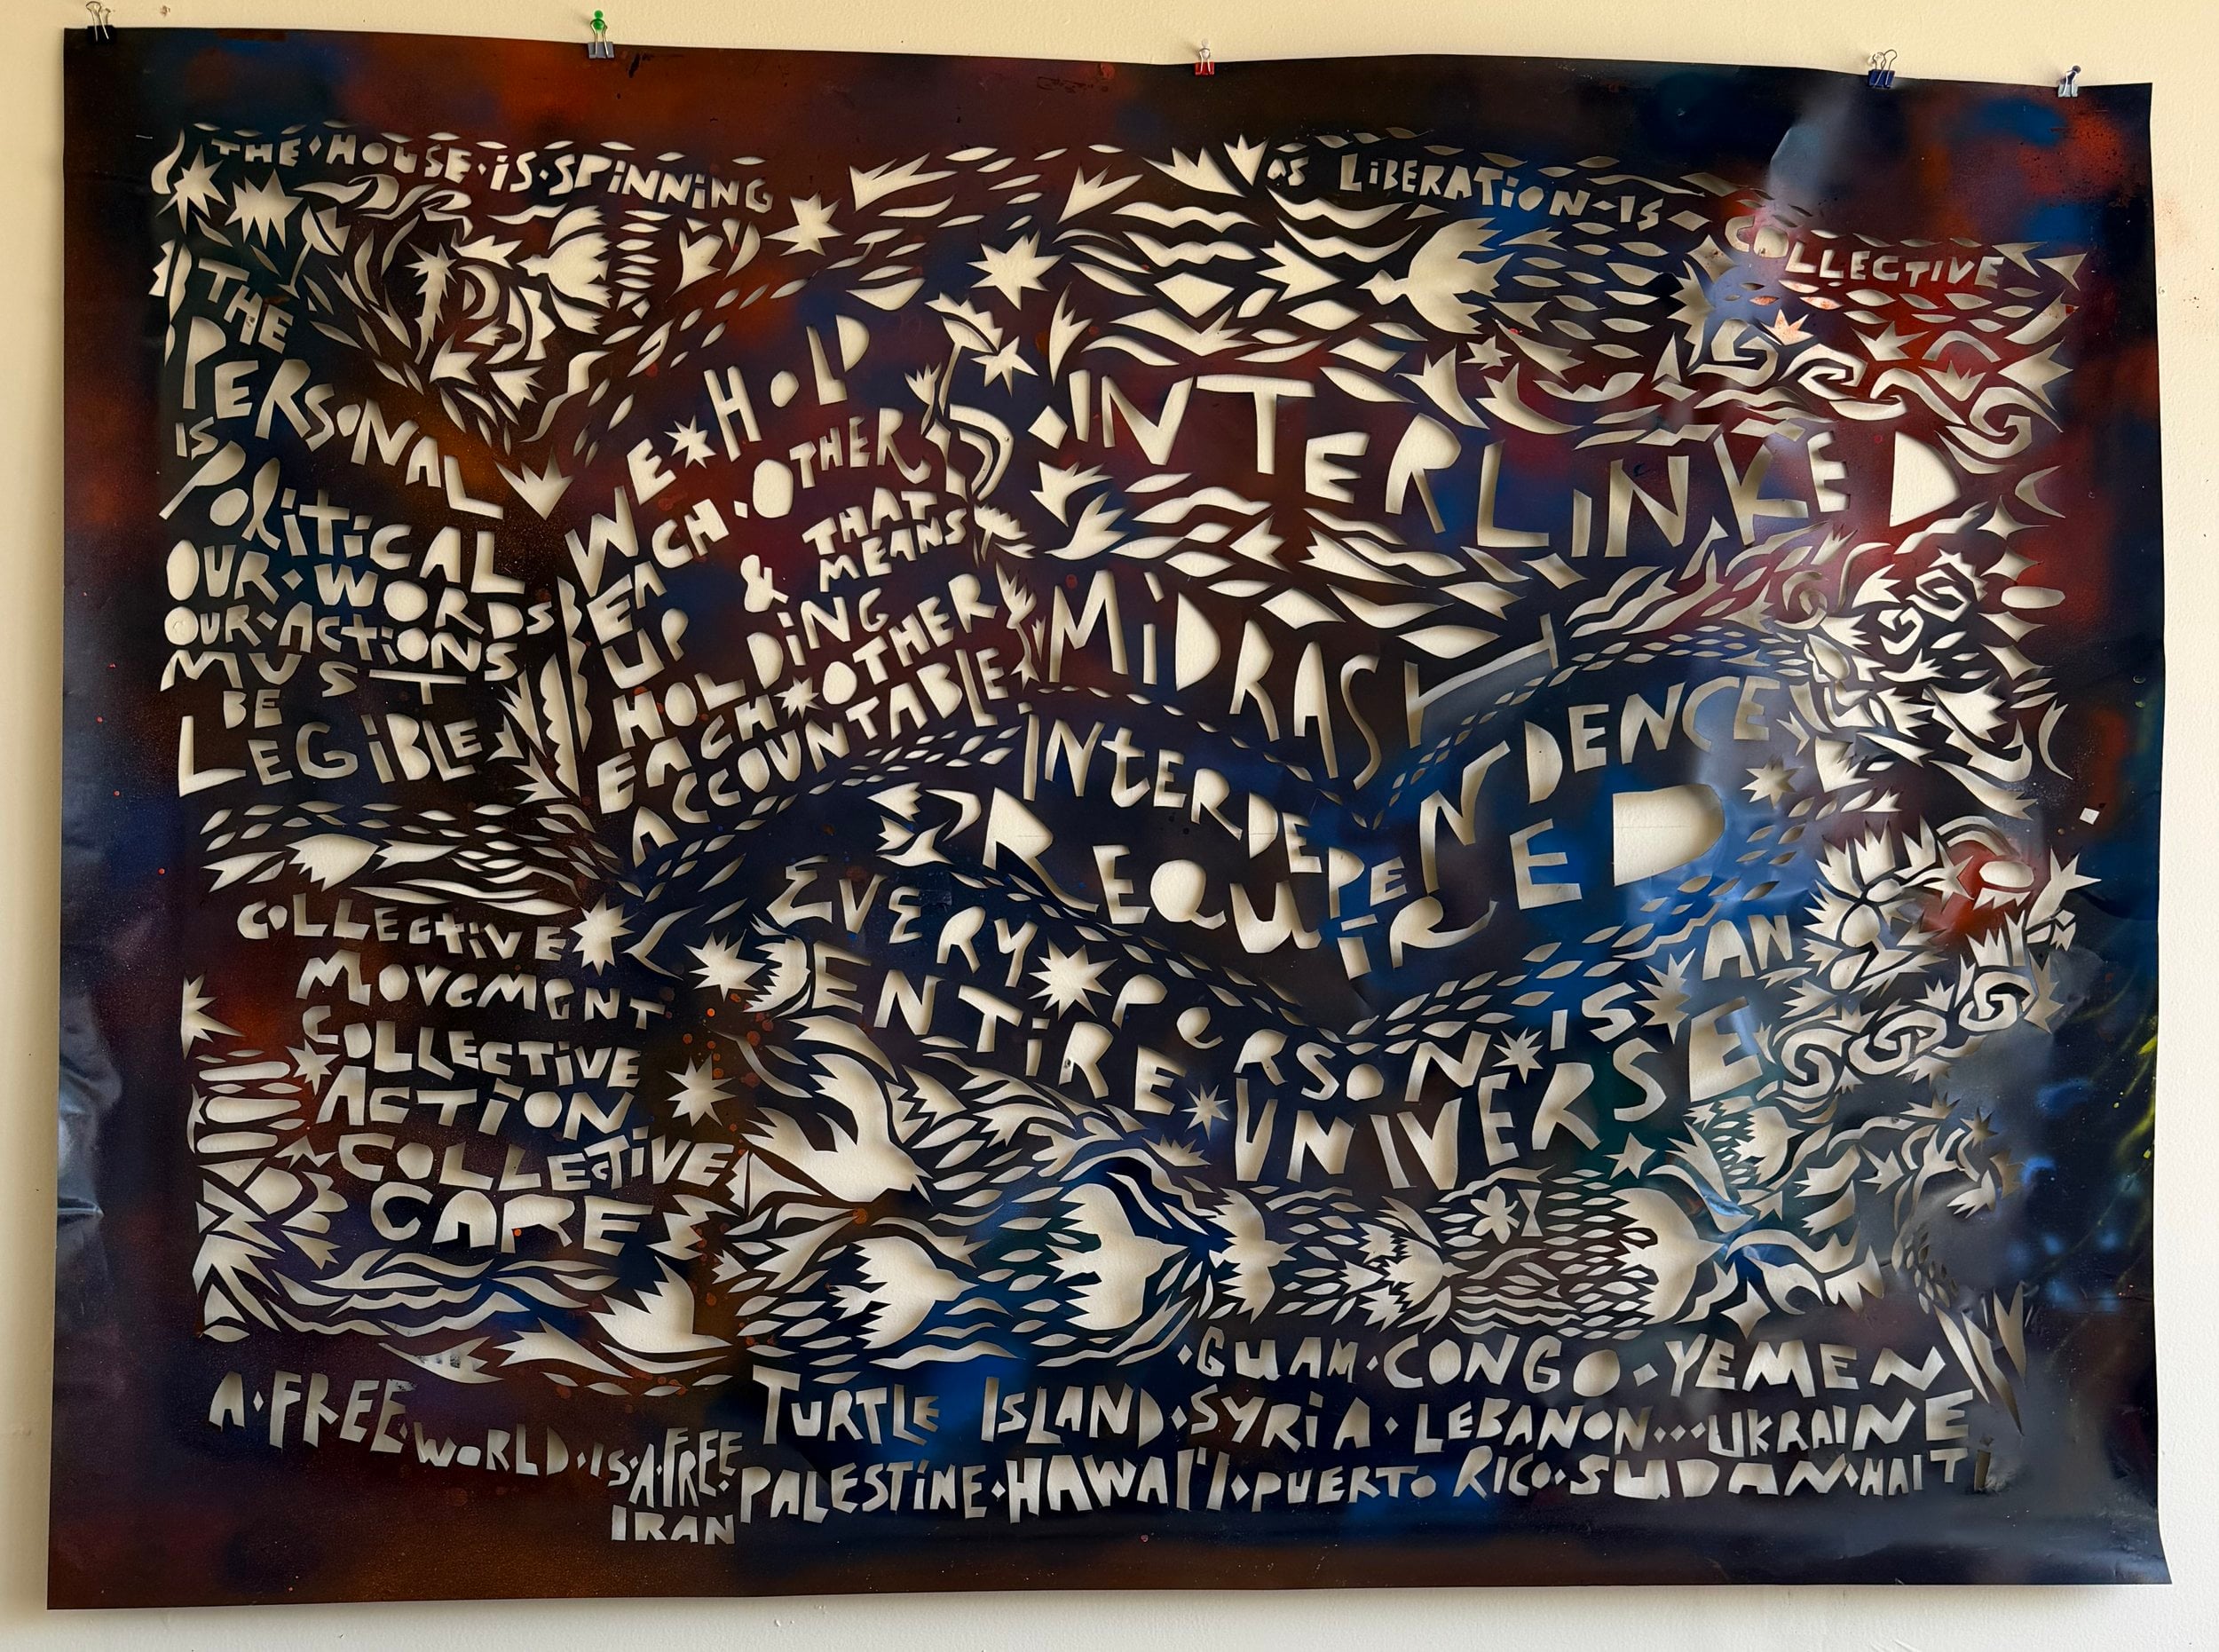 THE · HOUSE · iS · SPiNNiNG
AS LiBERATiON · IS ·
COLLECTIVE
THE
PERSONAL
IS
POLiTiCAL
OUR · WORDS
OUR · ACTiONS
MUST
BE
LEGiBLE
WE HOLD
EACH · OTHER
UP & THAT
MEANS
HOLDiNG
EACH OTHER
ACCOUNTABLE
· INTERLiNKED
MiDRASH
iNtERDEPENDENCE
REQUiRED
EVERY PeRSON iS AN
ENTiRE UNIVERSE
COLLECtiVE
MOVEMENT
COLLECTiVE
ACTiON
COLLECTiVE
CARE
· GUAM · CONGO · YEMEN
A · FREE · WORLD · iS · A · FREE
TURTLE ISLAND · SYRiA · LEBANON ... UKRAINE
IRAN
PALESTiNE · HAWAI'I · PUERTO RICO · SUDAN · HAITi